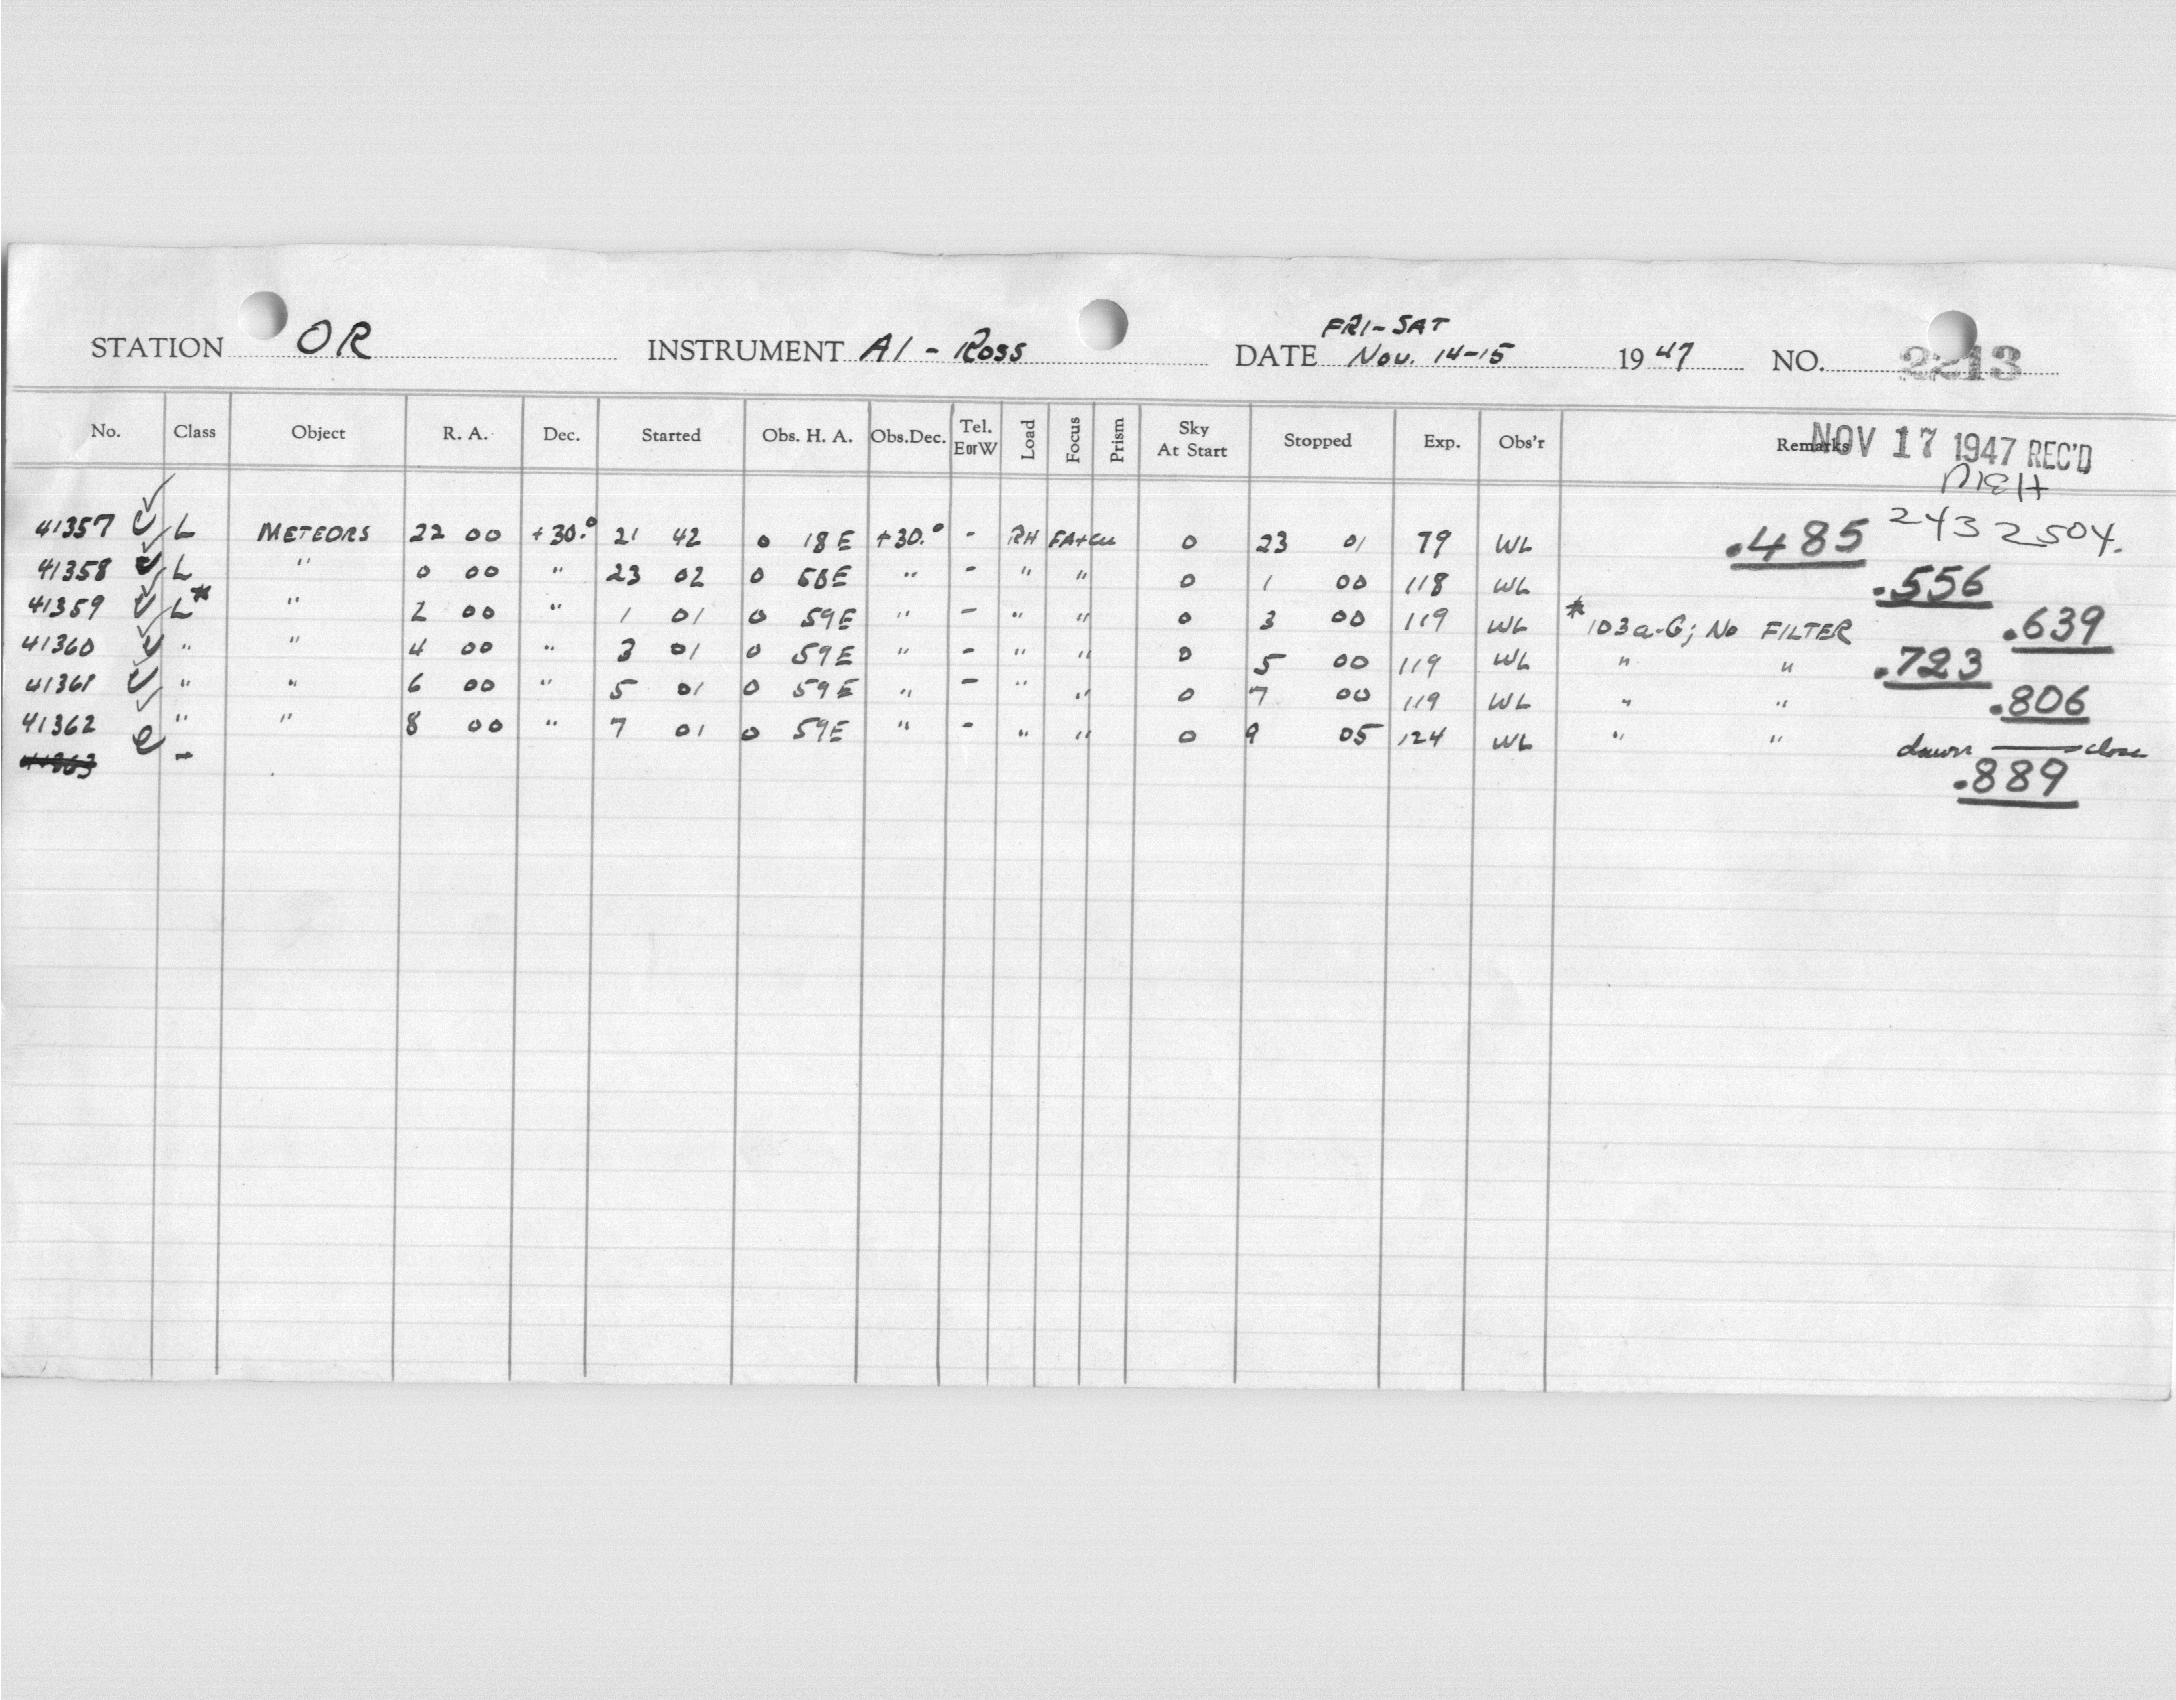 FRI-SAT
STATION OR INSTRUMENT AI - Ross DATE Nov. 14-15 1947 NO. 2213
No. Class Object R. A. Dec. Started Obs. H. A. Obs.Dec. Tel. E or W Load Focus Prism Sky At Start Stopped Exp. Obs'r Remarks
NOV 17 1947 REC'D
MEH
243 2504.
41357 L METEORS 22 00 +30.° 21 42 0 18E +30.° - RH FA+CU 0 23 01 79 WL .485
41358 L " 0 00 " 23 02 0 58E " - " " 0 1 00 118 WL .556
41359 L* " 2 00 " 1 01 0 59E " - " " 0 3 00 119 WL *103a-G; No FILTER .639
41360 " " 4 00 " 3 01 0 59E " - " " 0 5 00 119 WL " " .723
41361 " " 6 00 " 5 01 0 59E " - " " 0 7 00 119 WL " " .806
41362 " " 8 00 " 7 01 0 59E " - " " 0 9 05 124 WL " " dawn — close
41363 - .889